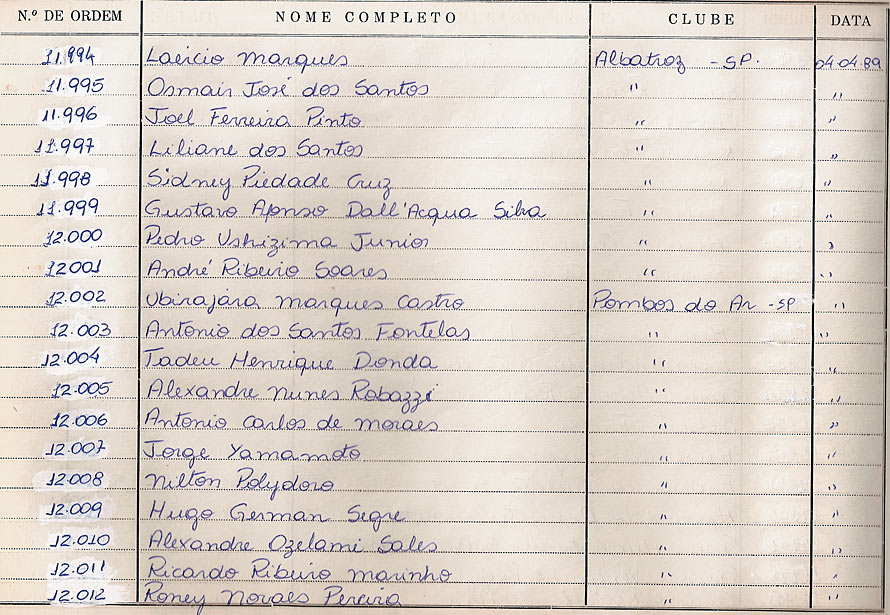 N.º DE ORDEM NOME COMPLETO CLUBE DATA
11.994 Laércio Marques Albatroz - SP. 04.04.89
11.995 Osmair José dos Santos " "
11.996 Joel Ferreira Pinto " "
11.997 Liliane dos Santos " "
11.998 Sidney Piedade Cruz " "
11.999 Gustavo Afonso Dall'Acqua Silva " "
12.000 Pedro Ushizima Junior " "
12001 André Ribeiro Soares " "
12.002 Ubirajára Marques Castro Pombos do Ar - SP "
12.003 Antonio dos Santos Fontelas " "
12.004 Tadeu Henrique Donda " "
12.005 Alexandre Nunes Robazzi " "
12.006 Antonio Carlos de Moraes " "
12.007 Jorge Yamamoto " "
12.008 Nilton Polydoro " "
12.009 Hugo German Segre " "
12.010 Alexandre Ozelami Sales " "
12.011 Ricardo Ribeiro Marinho " "
12.012 Roney Novaes Pereira " "